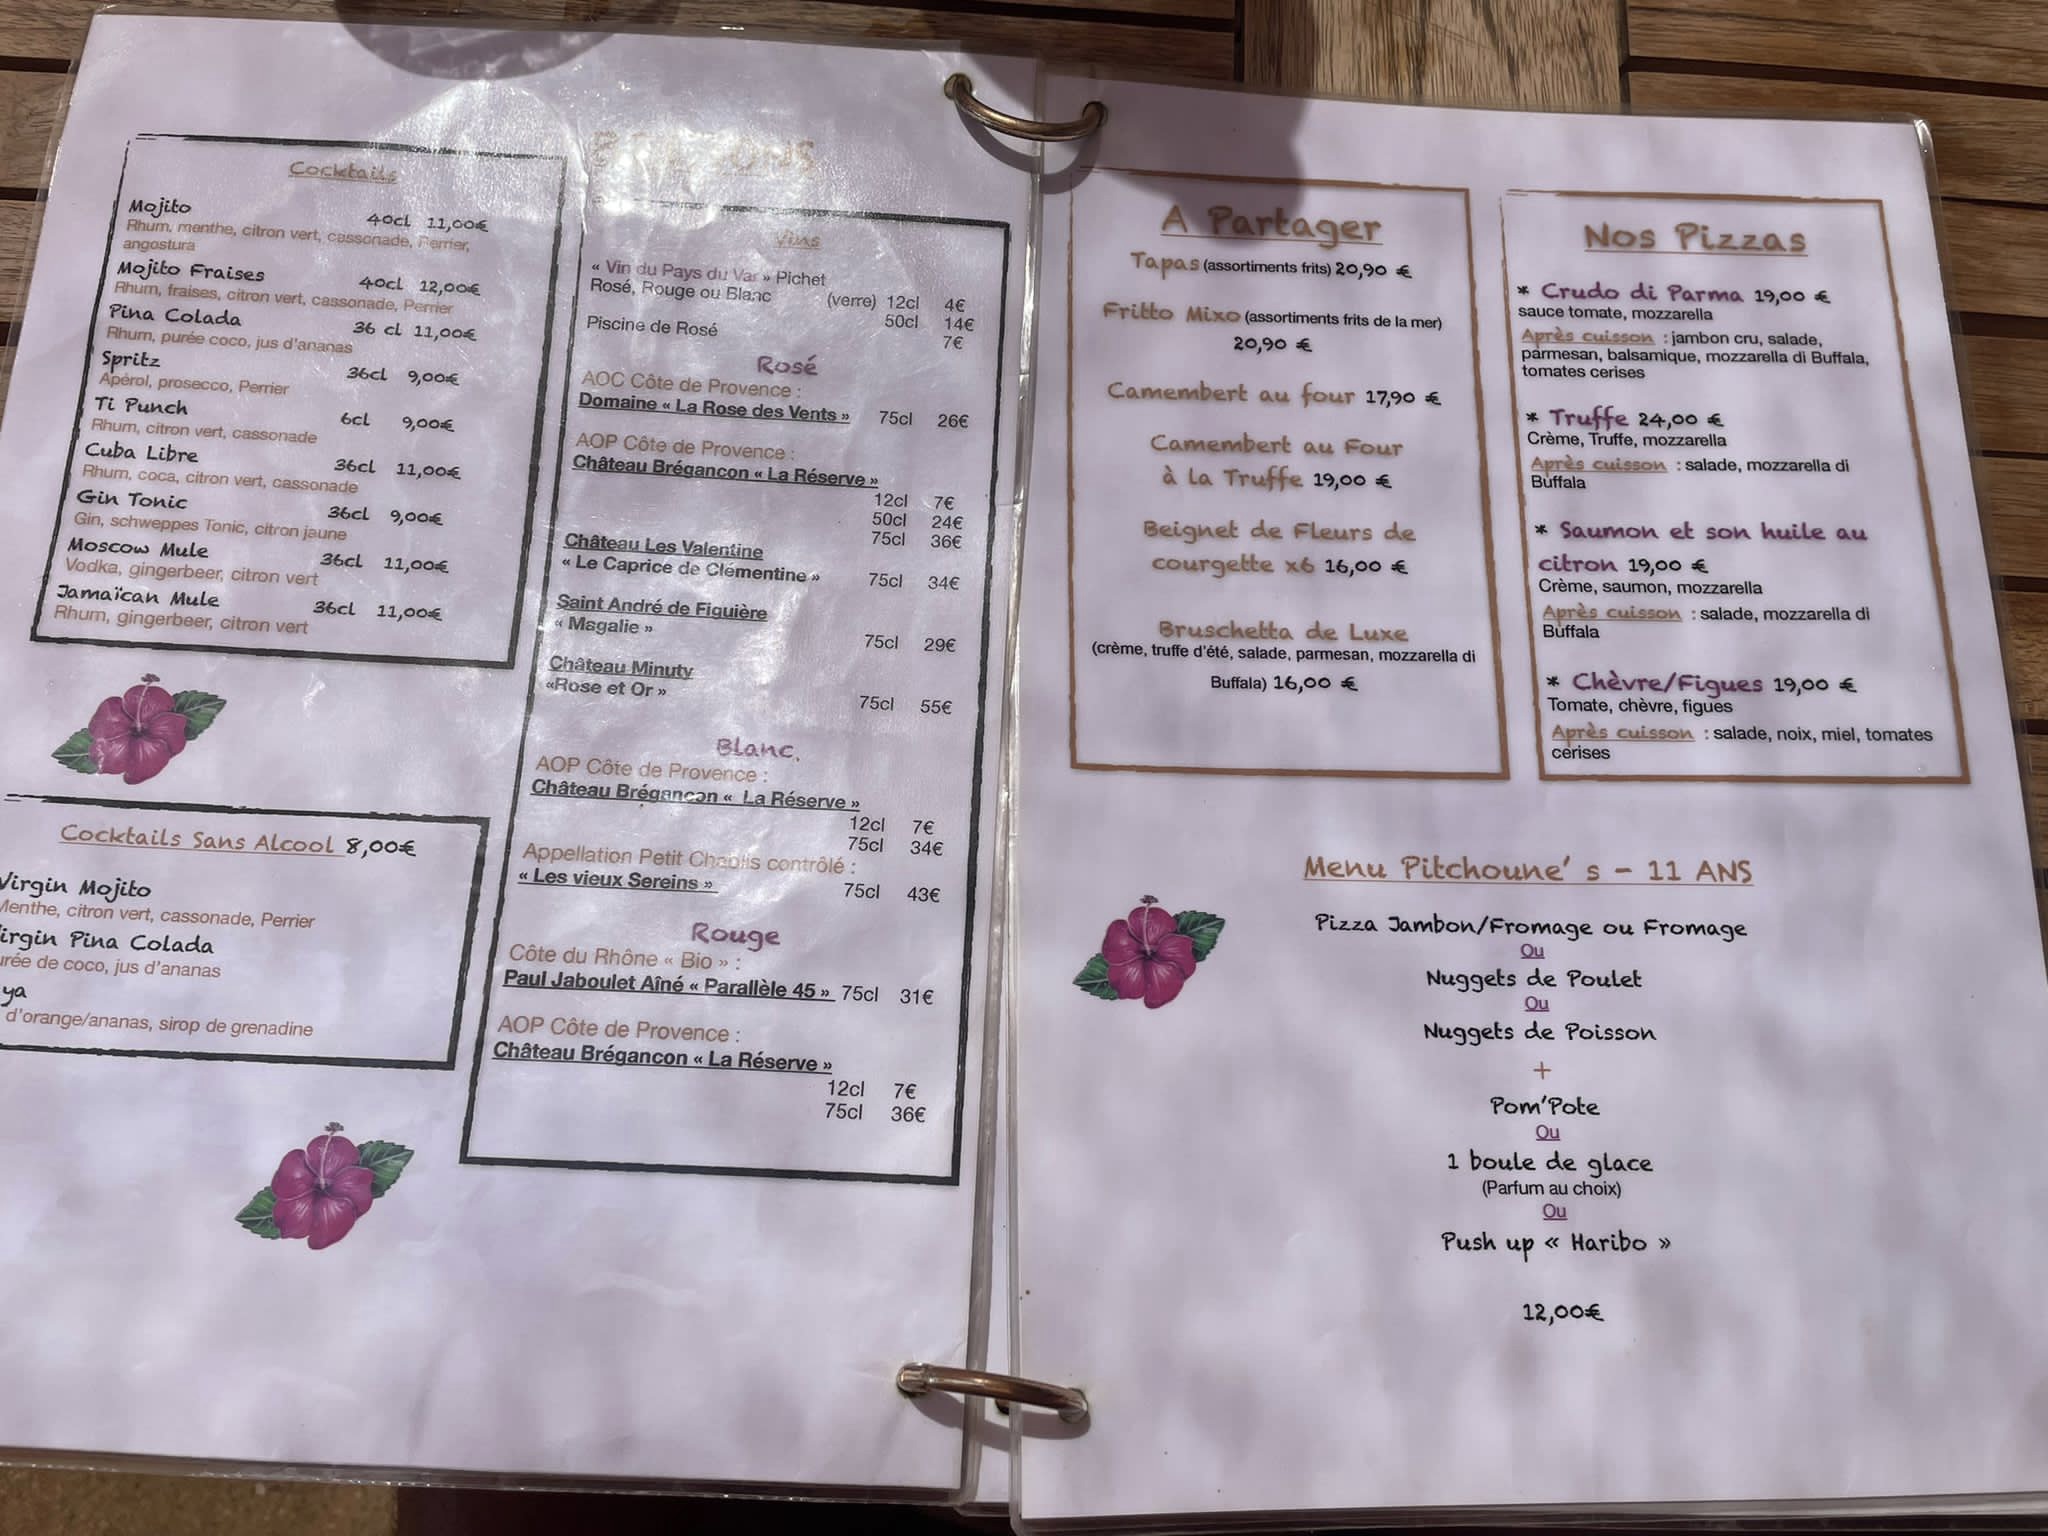 Cocktails
Mojito 40cl 11,00€
Rhum, menthe, citron vert, cassonade, Perrier,
angostura
Mojito Fraises 40cl 12,00€
Rhum, fraises, citron vert, cassonade, Perrier
Pina Colada 36 cl 11,00€
Rhum, purée coco, jus d'ananas
Spritz 36cl 9,00€
Apérol, prosecco, Perrier
Ti Punch 6cl 9,00€
Rhum, citron vert, cassonade
Cuba Libre 36cl 11,00€
Rhum, coca, citron vert, cassonade
Gin Tonic 36cl 9,00€
Gin, schweppes Tonic, citron jaune
Moscow Mule 36cl 11,00€
Vodka, gingerbeer, citron vert
Jamaïcan Mule 36cl 11,00€
Rhum, gingerbeer, citron vert
Cocktails Sans Alcool 8,00€
Virgin Mojito
Menthe, citron vert, cassonade, Perrier
irgin Pina Colada
urée de coco, jus d'ananas
ya
d'orange/ananas, sirop de grenadine
Vins
« Vin du Pays du Var » Pichet
Rosé, Rouge ou Blanc (verre) 12cl 4€
50cl 14€
Piscine de Rosé 7€
Rosé
AOC Côte de Provence :
Domaine « La Rose des Vents » 75cl 26€
AOP Côte de Provence :
Château Brégançon « La Réserve »
12cl 7€
50cl 24€
75cl 36€
Château Les Valentine
« Le Caprice de Clémentine » 75cl 34€
Saint André de Figuière
« Magalie »
75cl 29€
Château Minuty
«Rose et Or »
75cl 55€
Blanc,
AOP Côte de Provence :
Château Brégançon « La Réserve »
12cl 7€
75cl 34€
Appellation Petit Chablis contrôlé :
« Les vieux Sereins » 75cl 43€
Rouge
Côte du Rhône « Bio » :
Paul Jaboulet Aîné « Parallèle 45 » 75cl 31€
AOP Côte de Provence :
Château Brégançon « La Réserve »
12cl 7€
75cl 36€
A Partager
Tapas (assortiments frits) 20,90 €
Fritto Mixo (assortiments frits de la mer)
20,90 €
Camembert au four 17,90 €
Camembert au Four
à la Truffe 19,00 €
Beignet de Fleurs de
courgette x6 16,00 €
Bruschetta de Luxe
(crème, truffe d'été, salade, parmesan, mozzarella di
Buffala) 16,00 €
Nos Pizzas
* Crudo di Parma 19,00 €
sauce tomate, mozzarella
Après cuisson : jambon cru, salade,
parmesan, balsamique, mozzarella di Buffala,
tomates cerises
* Truffe 24,00 €
Crème, Truffe, mozzarella
Après cuisson : salade, mozzarella di
Buffala
* Saumon et son huile au
citron 19,00 €
Crème, saumon, mozzarella
Après cuisson : salade, mozzarella di
Buffala
* Chèvre/Figues 19,00 €
Tomate, chèvre, figues
Après cuisson : salade, noix, miel, tomates
cerises
Menu Pitchoune' s - 11 ANS
Pizza Jambon/Fromage ou Fromage
Ou
Nuggets de Poulet
Ou
Nuggets de Poisson
+
Pom'Pote
Ou
1 boule de glace
(Parfum au choix)
Ou
Push up « Haribo »
12,00€